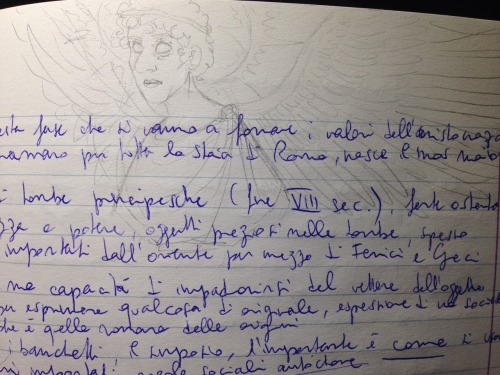 fase che si vanno a formare i valori dell'aristocrazia
per tutta la storia di Roma, nasce il mos
tombe principesche (fine VIII sec.), forte
e potere, oggetti preziosi nelle tombe, spesso
importati dall'oriente per mezzo di Fenici e Greci
ma capacità di impadronirsi del vettore dell'oggetto
esprimere qualcosa di originale, espressione di una
che è quella romana delle origini
i banchetti, il simposio, l'importante è come si
importati, sociali autoctone